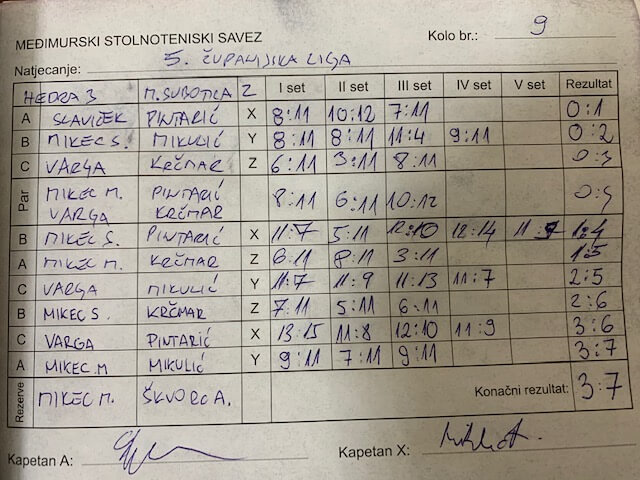 MEĐIMURSKI STOLNOTENISKI SAVEZ Kolo br.: 9
Natjecanje: 5. ŽUPANIJSKA LIGA
HEDRA 3 M. SUBOTICA 2 I set II set III set IV set V set Rezultat
A SLAVIČEK PINTARIĆ X 8:11 10:12 7:11 0:1
B MIKEC S. MIKULIĆ Y 8:11 8:11 11:4 9:11 0:2
C VARGA KRČMAR Z 6:11 3:11 8:11 0:3
Par MIKEC M. PINTARIĆ 8:11 6:11 10:12 0:4
VARGA KRČMAR
B MIKEC S. PINTARIĆ X 11:7 5:11 12:10 12:14 11:9 1:4
A MIKEC M. KRČMAR Z 6:11 8:11 3:11 1:5
C VARGA MIKULIĆ Y 11:7 11:9 11:13 11:7 2:5
B MIKEC S. KRČMAR Z 7:11 5:11 6:11 2:6
C VARGA PINTARIĆ X 13:15 11:8 12:10 11:9 3:6
A MIKEC M MIKULIĆ Y 9:11 7:11 9:11 3:7
Rezerve MIKEC M. ŠKVORC A. Konačni rezultat: 3:7
Kapetan A: Kapetan X: